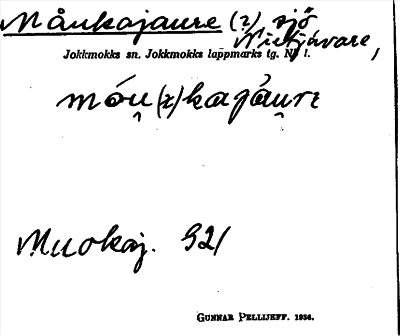 Måukajaure (2) sjö
Nietjávare,
Jokkmokks sn. Jokkmokks lappmarks tg. Nb l.
móu̯ (2) kaġáu̯re
Muokaj. 921
GUNNAR PELLIJEFF. 1936.